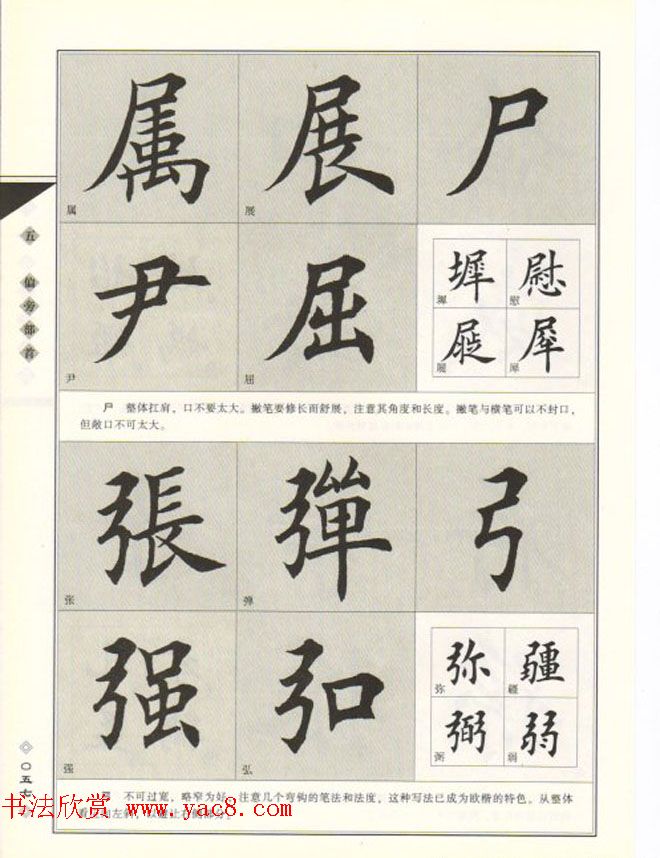 五 偏旁部首
属 展 尸
属 展
尹 屈
尹 屈
墀 慰
墀 慰
屣 犀
屣 犀
尸 整体扛肩，口不要太大。撇笔要修长而舒展，注意其角度和长度。撇笔与横笔可以不封口，
但敞口不可太大。
張 彈 弓
张 弹
强 弘
强 弘
弥 疆
弥 疆
弼 弱
弼 弱
弓 不可过宽，略窄为好，注意几个弯钩的笔法和法度，这种写法已成为欧楷的特色。从整体
○五七
书法欣赏 www.yac8.com